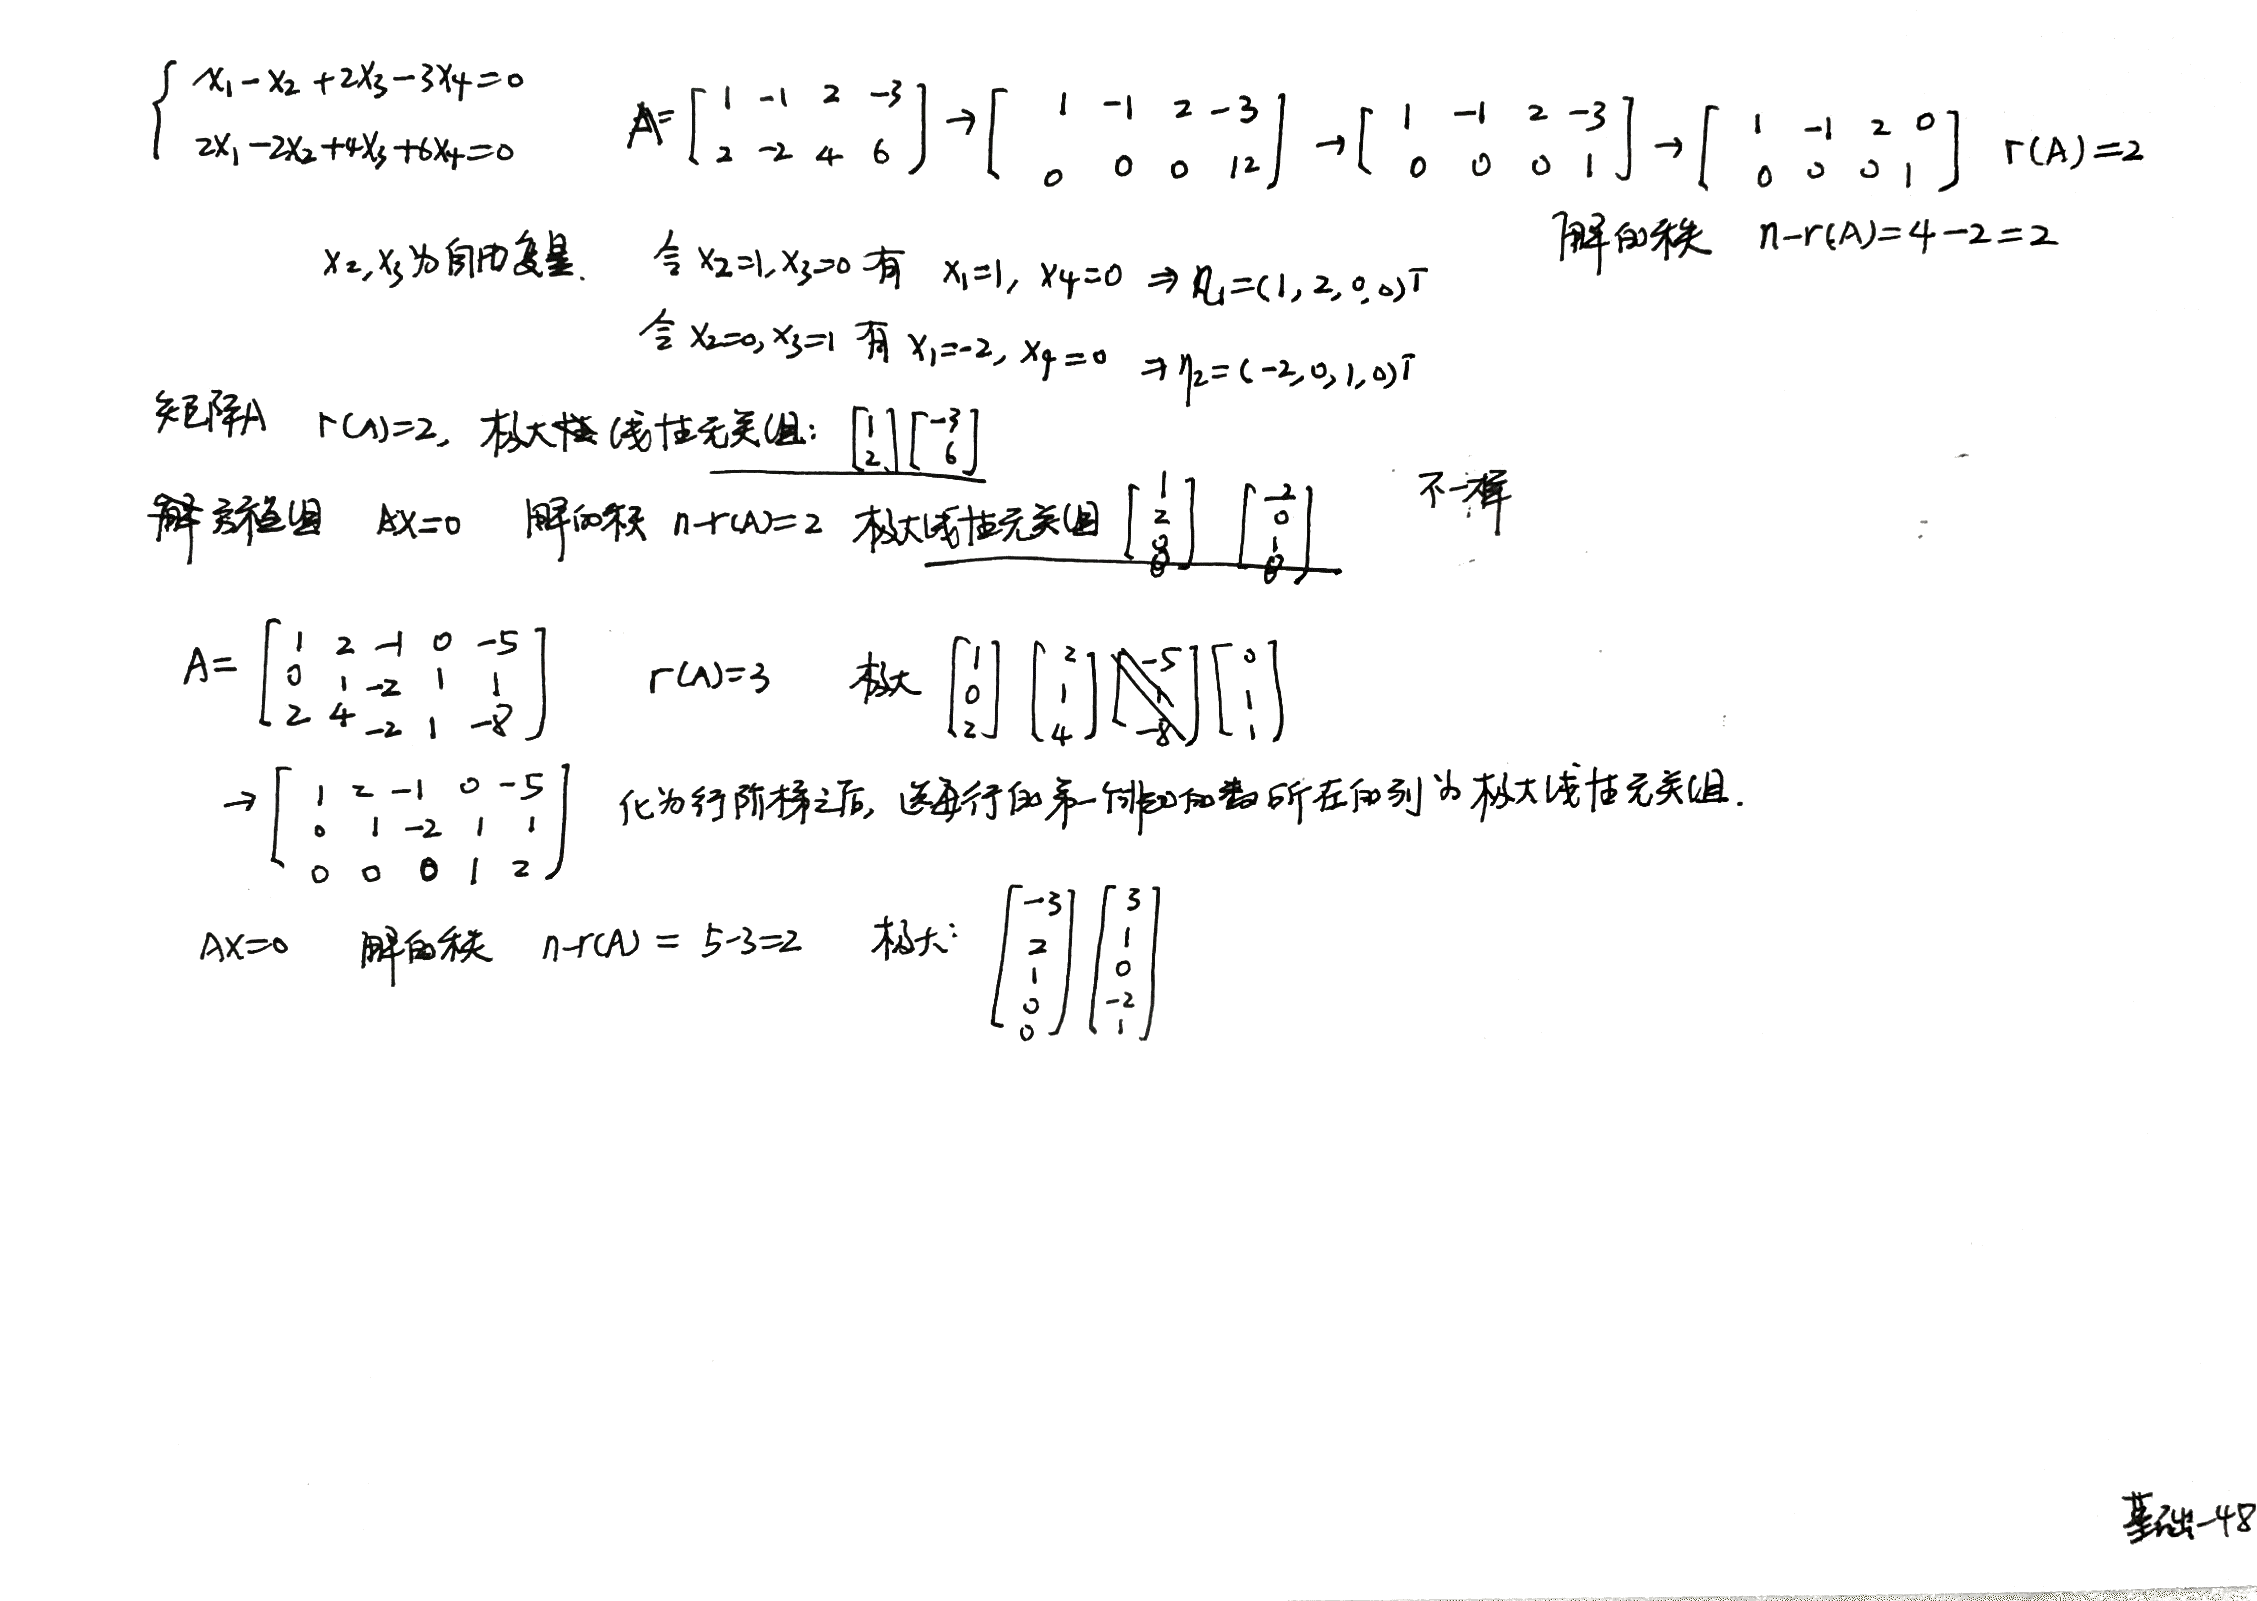 x₁-x₂+2x₃-3x₄=0
2x₁-2x₂+4x₃+6x₄=0
A=[1 -1 2 -3; 2 -2 4 6] → [1 -1 2 -3; 0 0 0 12] → [1 -1 2 -3; 0 0 0 1] → [1 -1 2 0; 0 0 0 1] r(A)=2
解的秩 n-r(A)=4-2=2
x₂,x₃为自由变量. 令x₂=1,x₃=0有 x₁=1, x₄=0 ⇒ η₁=(1,2,0,0)ᵀ
令x₂=0,x₃=1有 x₁=-2, x₄=0 ⇒ η₂=(-2,0,1,0)ᵀ
矩阵A r(A)=2, 极大线性无关组: [1; 2] [-3; 6]
解方程组 AX=0 解的秩 n-r(A)=2 极大线性无关组 [1; 2; 0; 0] [-2; 0; 1; 0] 不一样
A=[1 2 -1 0 -5; 0 1 -2 1 1; 2 4 -2 1 -8] r(A)=3 极大 [1; 0; 2] [2; 1; 4] [-5; 1; -8] [0; 1; 1]
→ [1 2 -1 0 -5; 0 1 -2 1 1; 0 0 0 1 2] 化为行阶梯之后, 选每行的第一个非0的数所在的列为极大线性无关组.
AX=0 解的秩 n-r(A)=5-3=2 极大: [-3; 2; 1; 0; 0] [3; 1; 0; -2; 1]
基础-48